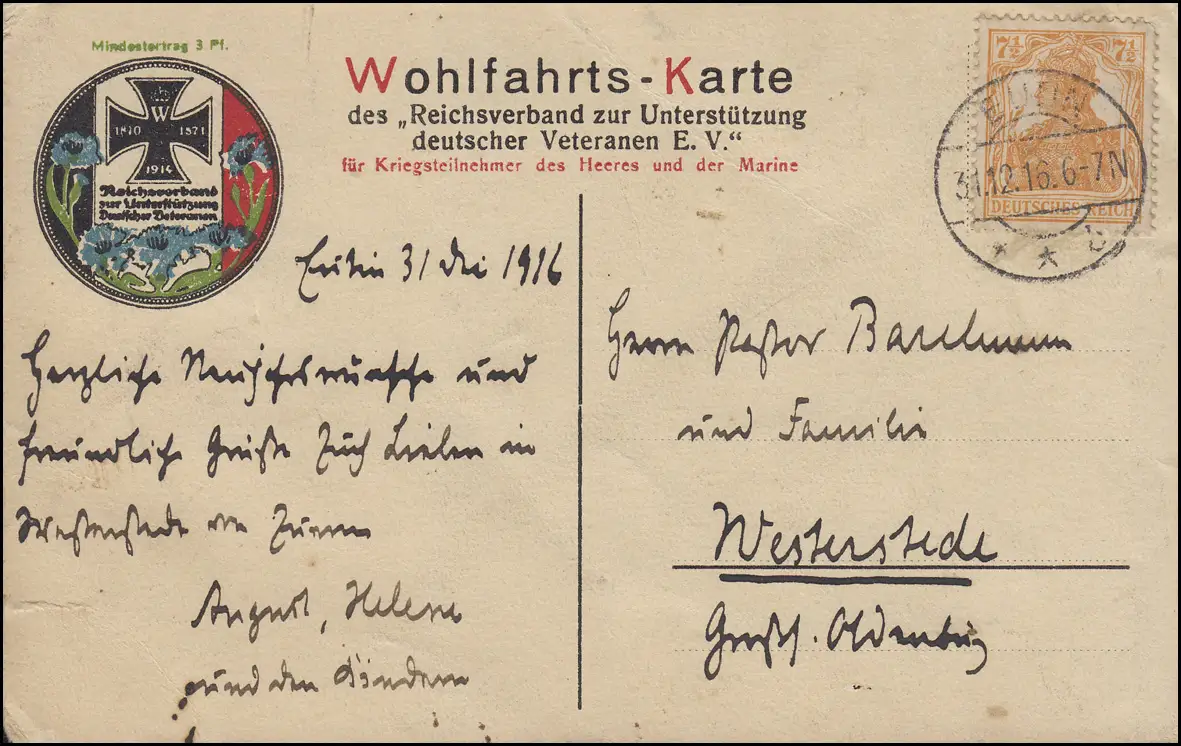 Mindestertrag 3 Pf.
Wohlfahrts-Karte
des „Reichsverband zur Unterstützung
deutscher Veteranen E. V.“
für Kriegsteilnehmer des Heeres und der Marine
W
1870 1871
1914
Reichsverband
zur Unterstützung
Deutscher Veteranen
7½ 7½
DEUTSCHES REICH
EUTIN
31.12.16.6-7N
* * b
Eutin 31 Dez 1916
Herzliche Neujahrswünsche und
freundliche Grüße Euch Lieben in
Westerstede von Euren
August, Helene
und den Kindern
Herrn Pastor Barelmann
und Familie
Westerstede
Großh. Oldenburg